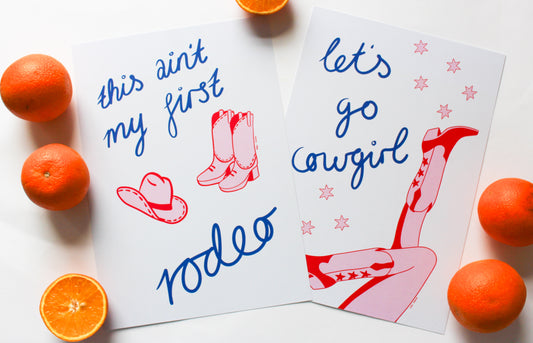 this ain't
my first
rodeo
let's
go
cowgirl